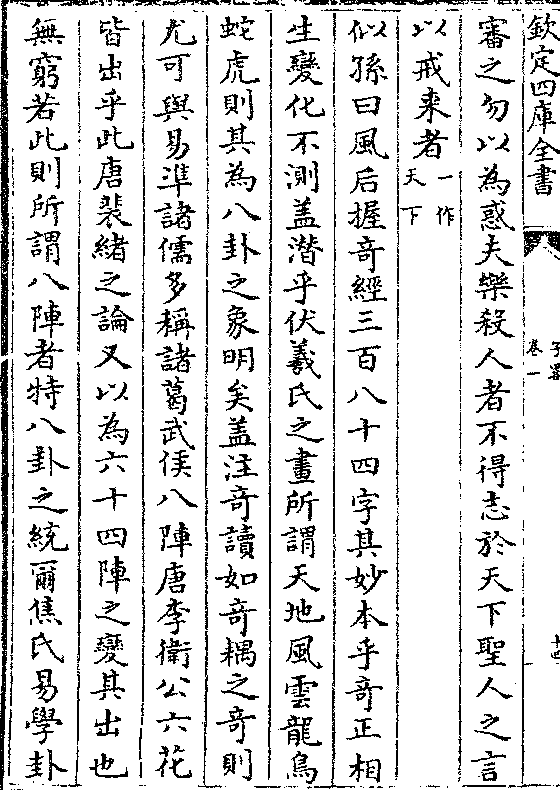 欽定四庫全書
子畧
卷一
十四
審之勿以為惑夫樂殺人者不得志於天下聖人之言
以戒来者一作天下
似孫曰風后握奇經三百八十四字其妙本乎奇正相
生變化不測盖潛乎伏羲氏之畫所謂天地風雲龍鳥
蛇虎則其為八卦之象明矣盖注奇讀如奇耦之奇則
尤可與易準諸儒多稱諸葛武侯八陣唐李衛公六花
皆出乎此唐裴緒之論又以為六十四陣之變其出也
無窮若此則所謂八陣者特八卦之統爾焦氏易學卦